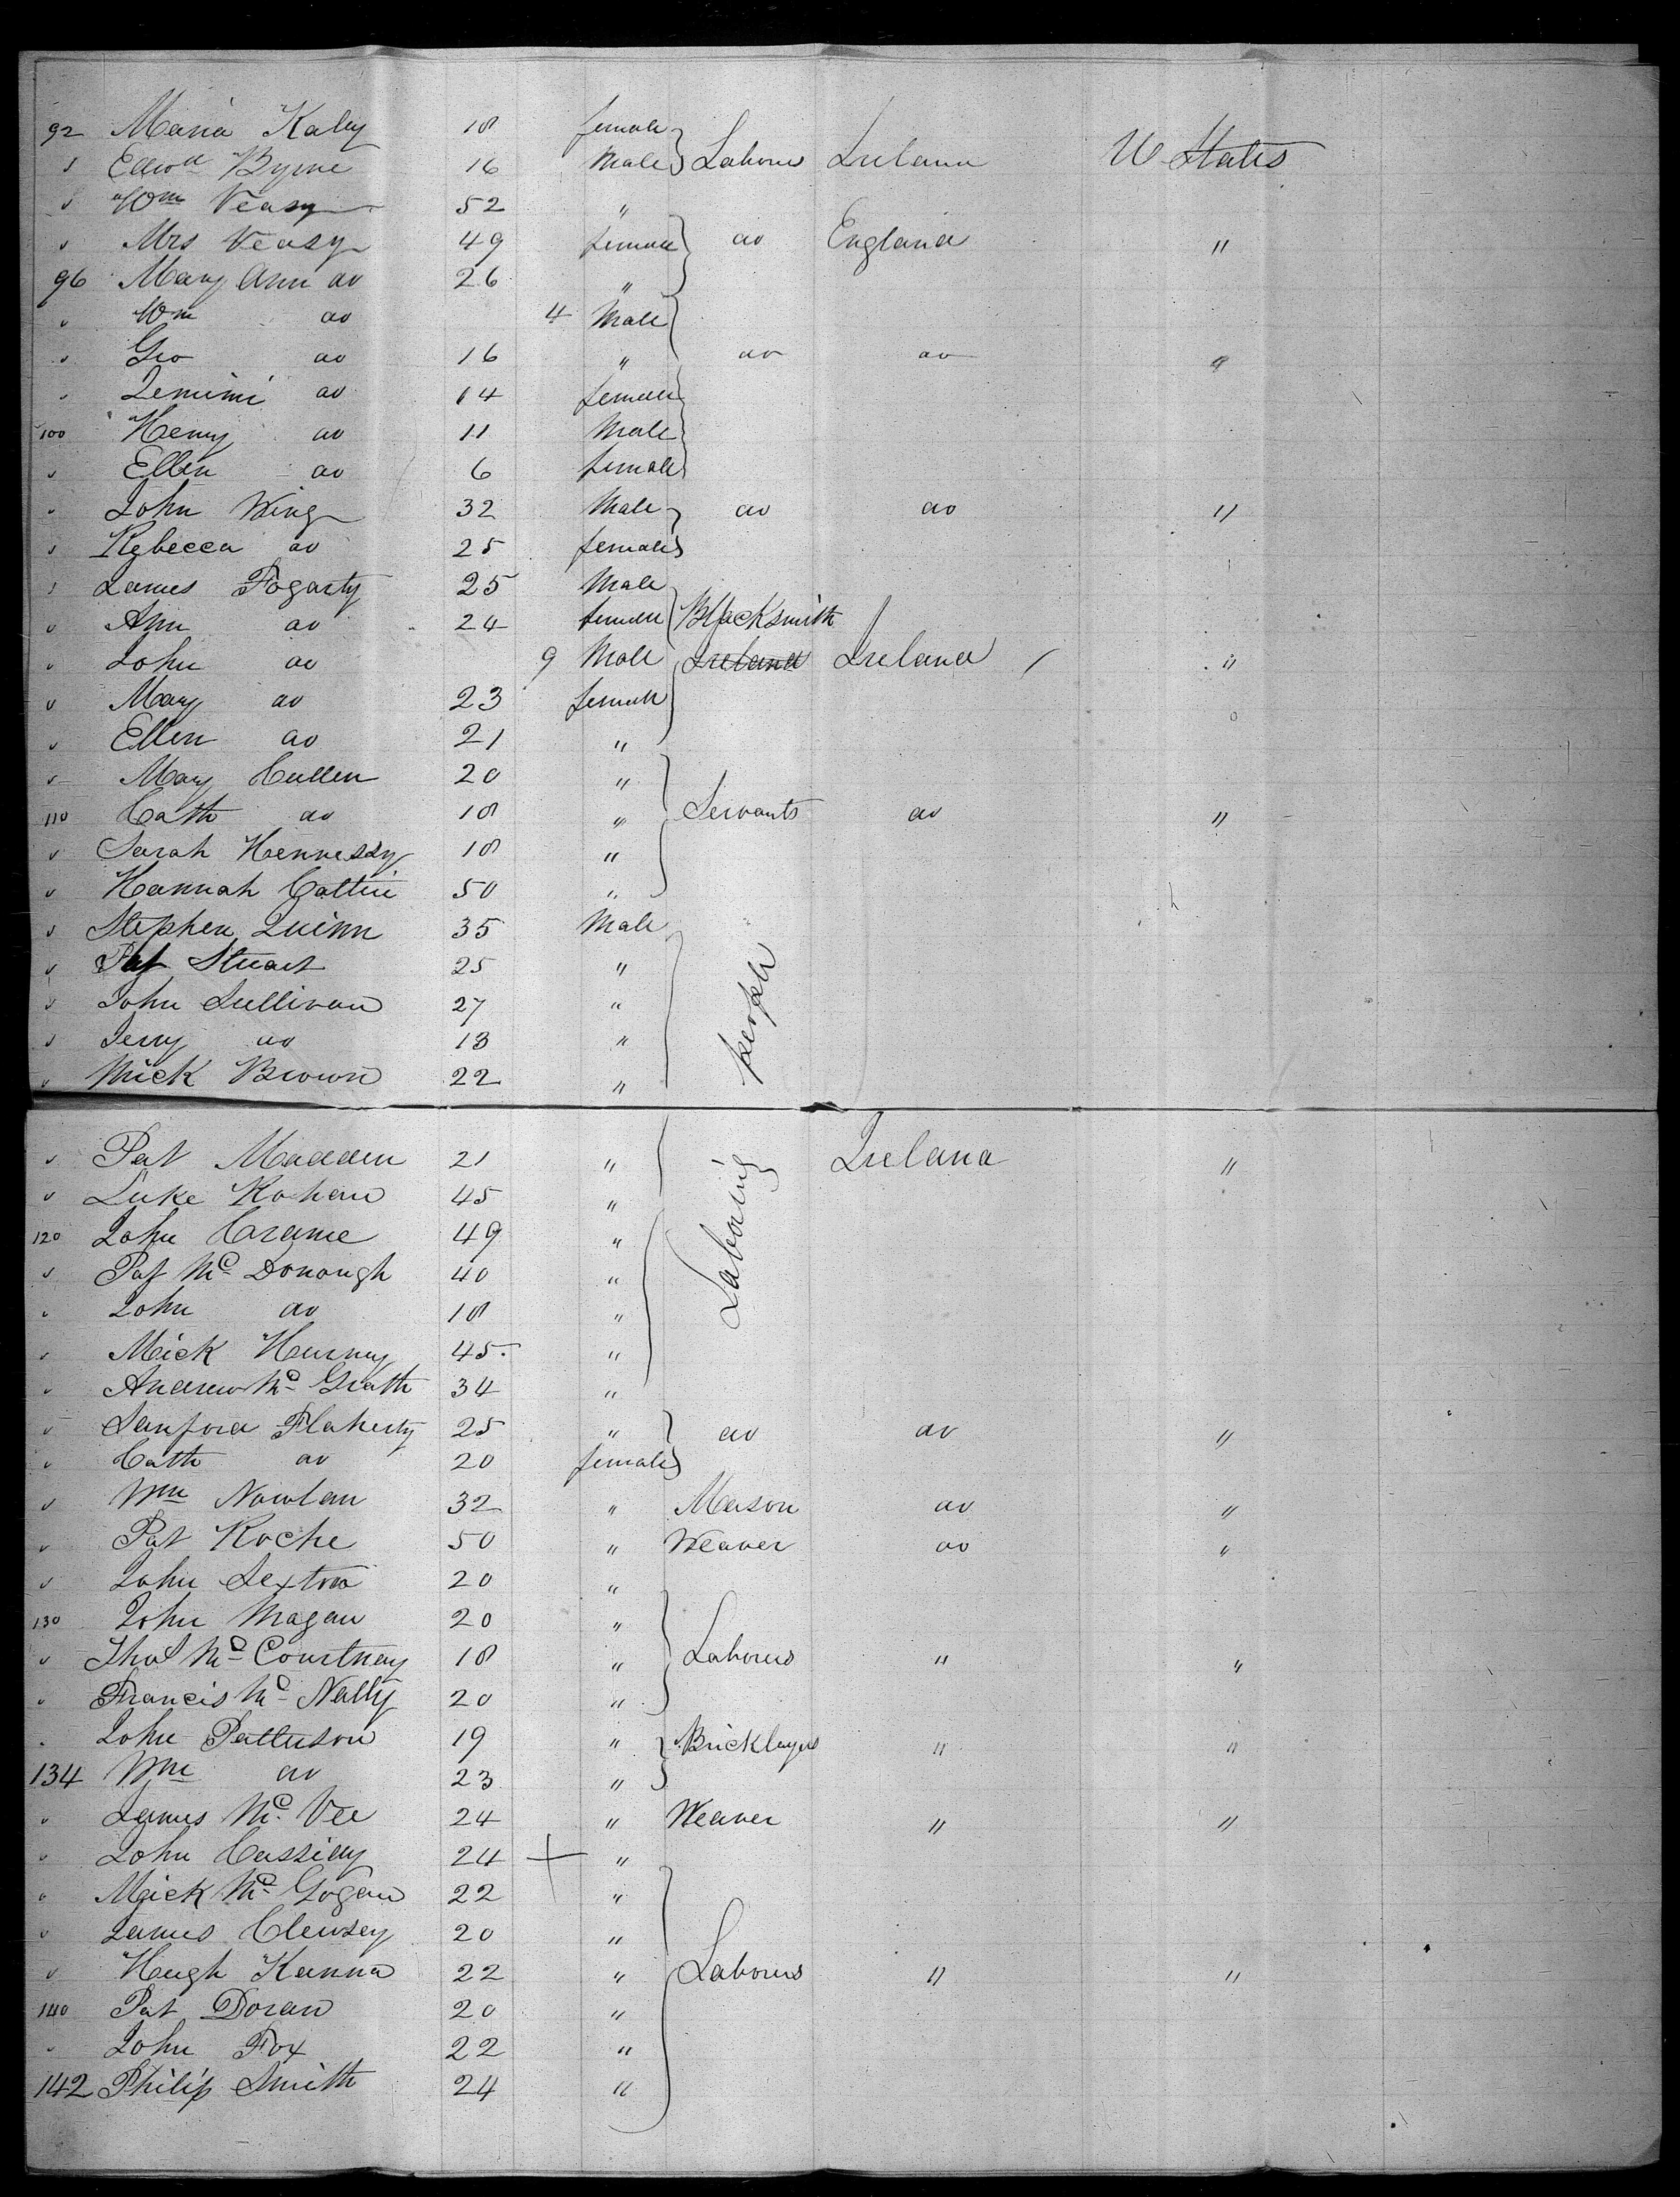 92 Maria Kaley 18 female
" Edwd Byrne 16 Male Laborers Ireland U States
" Wm Veasy 52 "
" Mrs Veasy 49 female do England "
96 Mary Ann do 26 "
" Wm do 4 Male
" Geo do 16 " do do "
" Jemimi do 14 female
100 Henry do 11 Male
" Ellen do 6 female
" John Wing 32 Male do do "
" Rebecca do 25 female
" James Fogarty 25 Male
" Ann do 24 female Blacksmith
" John do 9 Male Ireland Ireland "
" Mary do 23 female
" Ellen do 21 "
" Mary Cullen 20 "
110 Cath do 18 " Servants do "
" Sarah Hennessy 18 "
" Hannah 50 "
" Stephen Quinn 35 Male
" Pat Stuart 25 "
" John Sullivan 27 "
" Jerry do 18 "
" Mick Brown 22 "
Laboring people
" Pat Madden 21 " Ireland "
" Luke Kohan 45 "
120 John Crame 49 "
" Pat Mc Donough 40 "
" John do 18 "
" Mick Hurney 45 "
" Andrew Mc Grath 34 "
" Sanford Flaherty 25 " do do "
" Cath do 20 female
" Wm Nowlan 32 " Mason do "
" Pat Roche 50 " Weaver do "
" John Sexton 20 "
130 John Magan 20 "
" Thos Mc Courtney 18 " Laborers " "
" Francis Mc Nally 20 "
" John Patterson 19 " Bricklayers " "
134 Wm do 23 "
" James Mc Vee 24 " Weaver " "
" John Cassidy 24 + "
" Mick Mc Gogan 22 "
" James Clensey 20 "
" Hugh Kanna 22 " Laborers " "
140 Pat Doran 20 "
" John Fox 22 "
142 Philip Smith 24 "